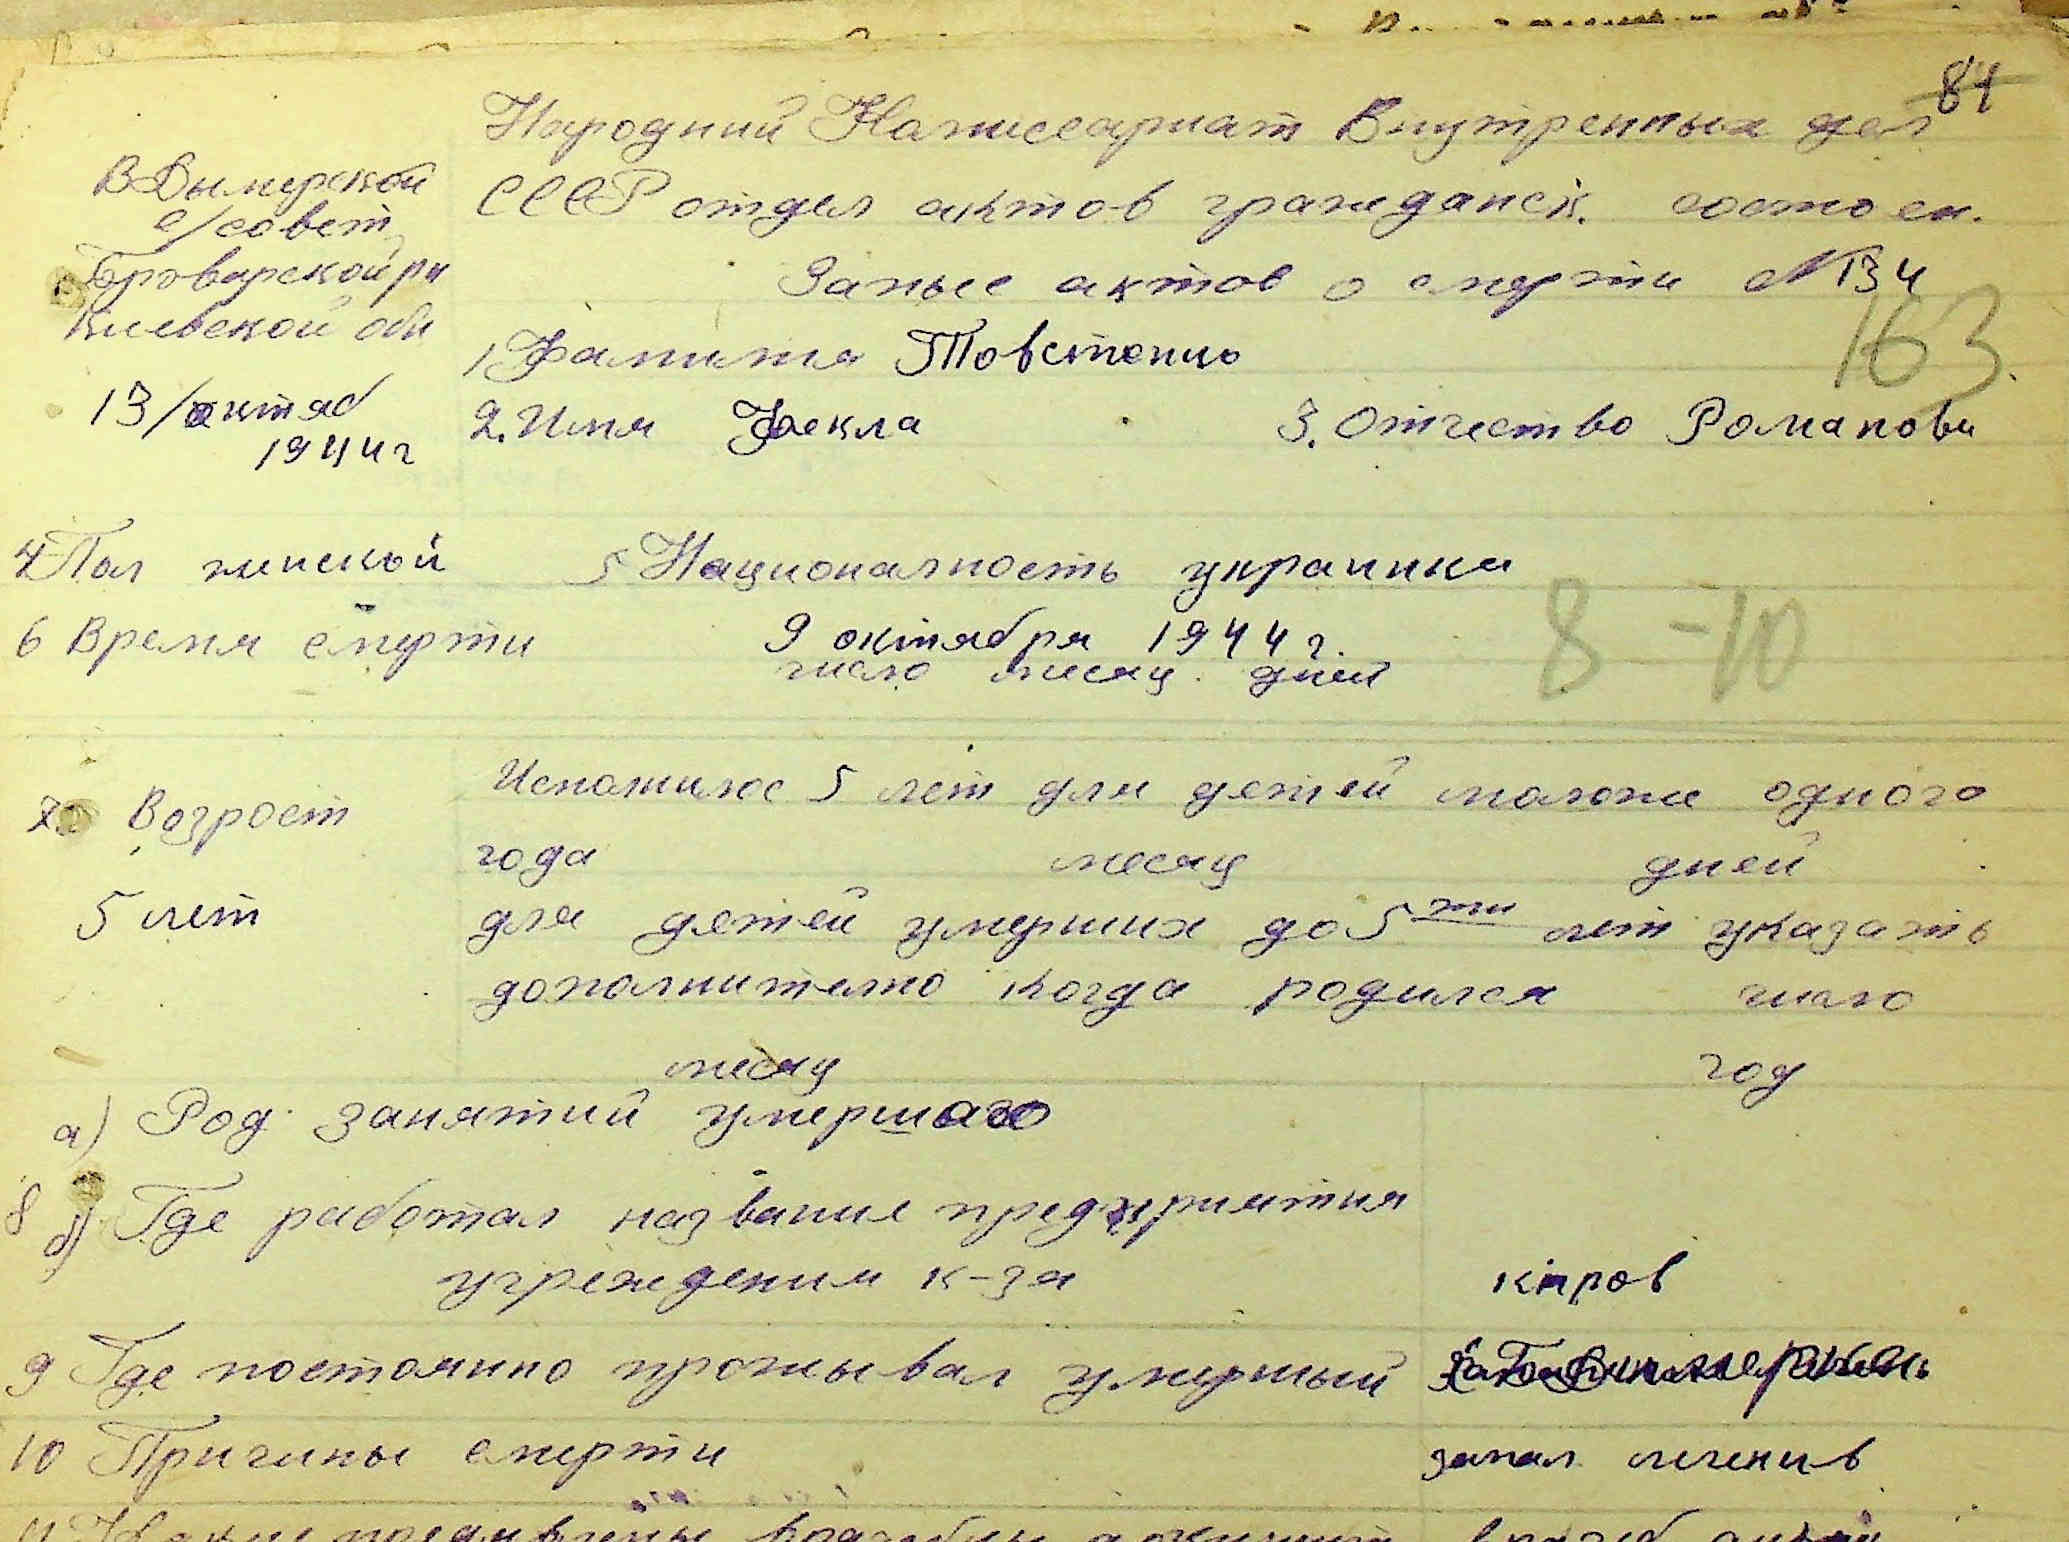 84
Народний Комиссариат Внутренных дел
СССР отдел актов гражданск. состоен.
Запыс актов о смерти №134
163
В Дымерской
с/совет
Броварской рн
Киевской обл
13/октяб
1944г
1 Фамилия Товстенко
2. Имя Фекла 3. Отчество Романовн
4 Пол женский 5 Националность украинка
6 Время смерти 9 октября 1944 г.
число месяц дней
8-10
7. Возрост
5 лет
Исполнилос 5 лет для детей моложе одного
года месяц дней
для детей умерших до 5 ти лет указать
дополнително когда родился число
месяц год
а) Род занятий умершого
8 б) Где работал название предприятия
учреждения к-за кіров
9 Где постоянно проживал умерший
10 Причины смерти запал легенив